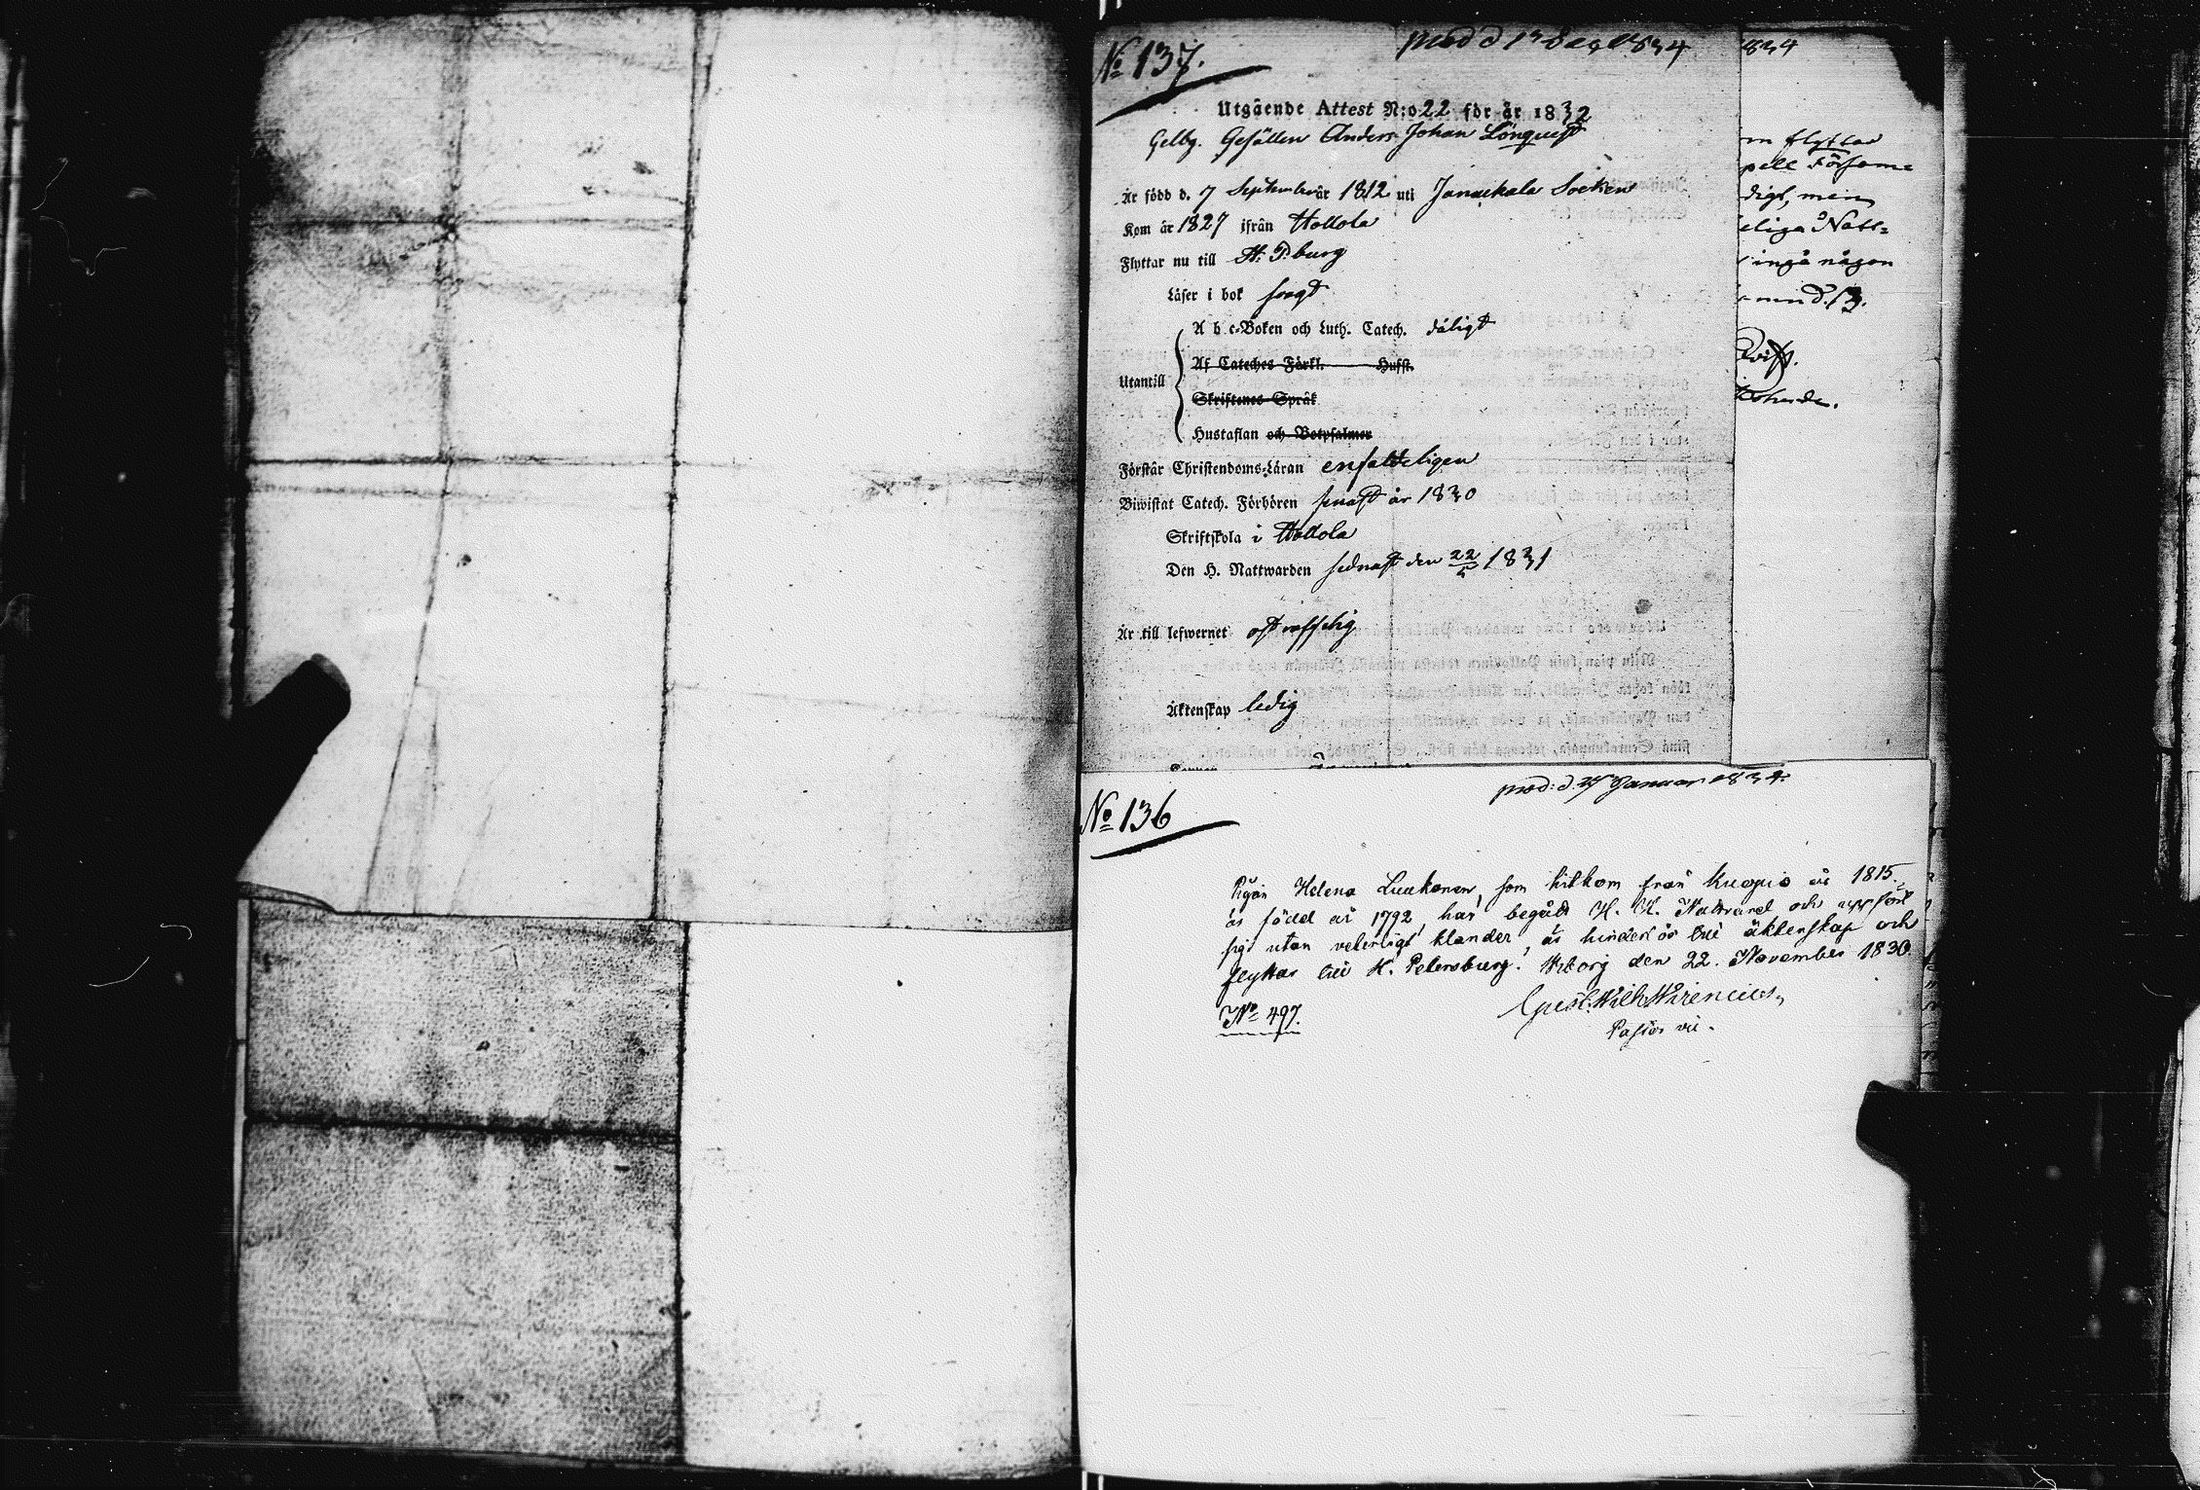 No 137.
prod d 13 Dec 1834
Utgående Attest N:o 22 för år 1832
Gelbg. Gesällen Anders Johan Lönquist
Är född d. 7 September år 1812 uti Janackala Socken
Kom år 1827 ifrån Hollola
Flyttar nu till St: P:burg
Läser i bok svagt
Utantill
A b c-Boken och Luth. Catech. dåligt
Af Cateches Förkl. Husst.
Skriftenes Språk
Hustaflan och Botpsalmer
Förstår Christendoms-Läran enfaldeligen
Biwistat Catech. Förhören senast år 1830
Skriftskola i Hollola
Den H. Nattwarden sednast den 22/5 1831
Är till lefwernet ostrafflig
Äktenskap ledig
834
m flyttar
pell Församl
digt, men
eliga Natt=
ingå någon
No 136
prod: d. Januar 1834.
Pigan Helena Luukanen, som hitkom från Kuopio år 1815,
är född år 1792, har begått H. H. Nattvard och uppfört
sig utan veterligt klander, är hinderlös till äktenskap och
flyttar till St. Petersburg. Wiborg den 22. November 1830.
No 497.
Gust. Wilh. Wirenius,
Pastor vic.